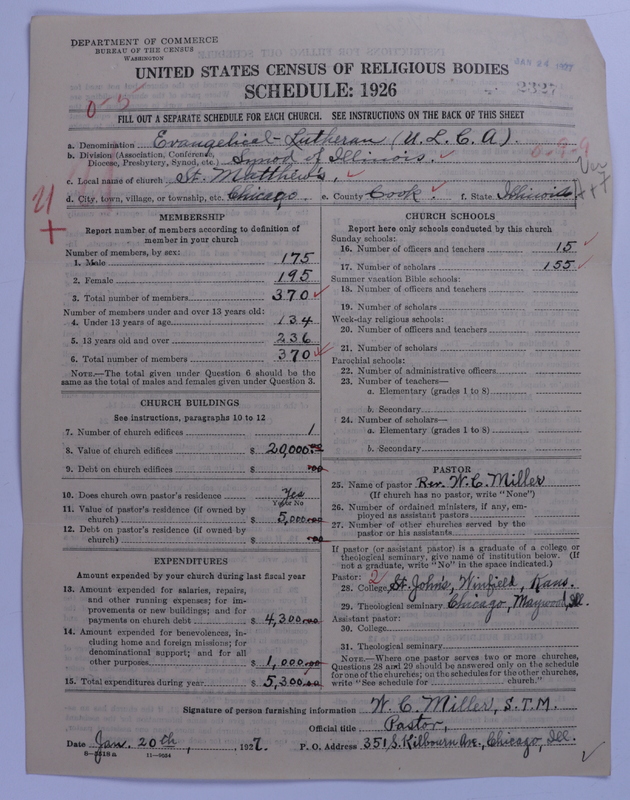 DEPARTMENT OF COMMERCE
BUREAU OF THE CENSUS
WASHINGTON
JAN 24 1927
UNITED STATES CENSUS OF RELIGIOUS BODIES
SCHEDULE: 1926
2327
0-5
FILL OUT A SEPARATE SCHEDULE FOR EACH CHURCH. SEE INSTRUCTIONS ON THE BACK OF THIS SHEET
a. Denomination Evangelical Lutheran (U.L.C.A).
b. Division (Association, Conference, Diocese, Presbytery, Synod, etc.) Synod of Illinois.
c. Local name of church St. Matthew's,
d. City, town, village, or township, etc. Chicago e. County Cook f. State Illinois
MEMBERSHIP
Report number of members according to definition of
member in your church
Number of members, by sex:
1. Male 175
2. Female 195
3. Total number of members 370
Number of members under and over 13 years old:
4. Under 13 years of age 134
5. 13 years old and over 236
6. Total number of members 370
NOTE.—The total given under Question 6 should be the
same as the total of males and females given under Question 3.
CHURCH BUILDINGS
See instructions, paragraphs 10 to 12
7. Number of church edifices 1
8. Value of church edifices $ 20,000.00
9. Debt on church edifices $
10. Does church own pastor's residence Yes
Yes or No
11. Value of pastor's residence (if owned by
church) $ 5,000.00
12. Debt on pastor's residence (if owned by
church) $
EXPENDITURES
Amount expended by your church during last fiscal year
13. Amount expended for salaries, repairs,
and other running expenses; for im-
provements or new buildings; and for
payments on church debt $ 4,300.00
14. Amount expended for benevolences, in-
cluding home and foreign missions; for
denominational support; and for all
other purposes $ 1,000.00
15. Total expenditures during year $ 5,300.00
CHURCH SCHOOLS
Report here only schools conducted by this church
Sunday schools:
16. Number of officers and teachers 15
17. Number of scholars 155
Summer vacation Bible schools:
18. Number of officers and teachers
19. Number of scholars
Week-day religious schools:
20. Number of officers and teachers
21. Number of scholars
Parochial schools:
22. Number of administrative officers
23. Number of teachers—
a. Elementary (grades 1 to 8)
b. Secondary
24. Number of scholars—
a. Elementary (grades 1 to 8)
b. Secondary
PASTOR
25. Name of pastor Rev. W. C. Miller
(If church has no pastor, write "None")
26. Number of ordained ministers, if any, em-
ployed as assistant pastors
27. Number of other churches served by the
pastor or his assistants
If pastor (or assistant pastor) is a graduate of a college or
theological seminary, give name of institution below. (If
not a graduate, write "No" in the space indicated.)
Pastor: 2
28. College St. John's, Winfield, Kans.
29. Theological seminary Chicago, Maywood, Ill.
Assistant pastor:
30. College
31. Theological seminary
NOTE.—Where one pastor serves two or more churches,
Questions 28 and 29 should be answered only on the schedule
for one of the churches; on the schedules for the other churches,
write "See schedule for church."
Signature of person furnishing information W. C. Miller, S.T.M.
Official title Pastor,
Date Jan. 20th, 1927. P. O. Address 351 S. Kilbourn Ave., Chicago, Ill.
8-5518a 11-9054